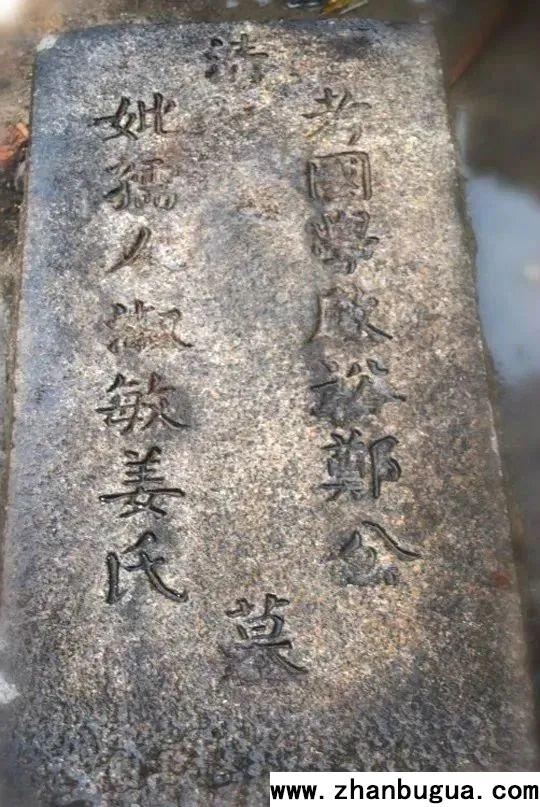 清
考國學啟裕鄭公
妣孺人淑敏姜氏
墓
www.zhanbugua.com